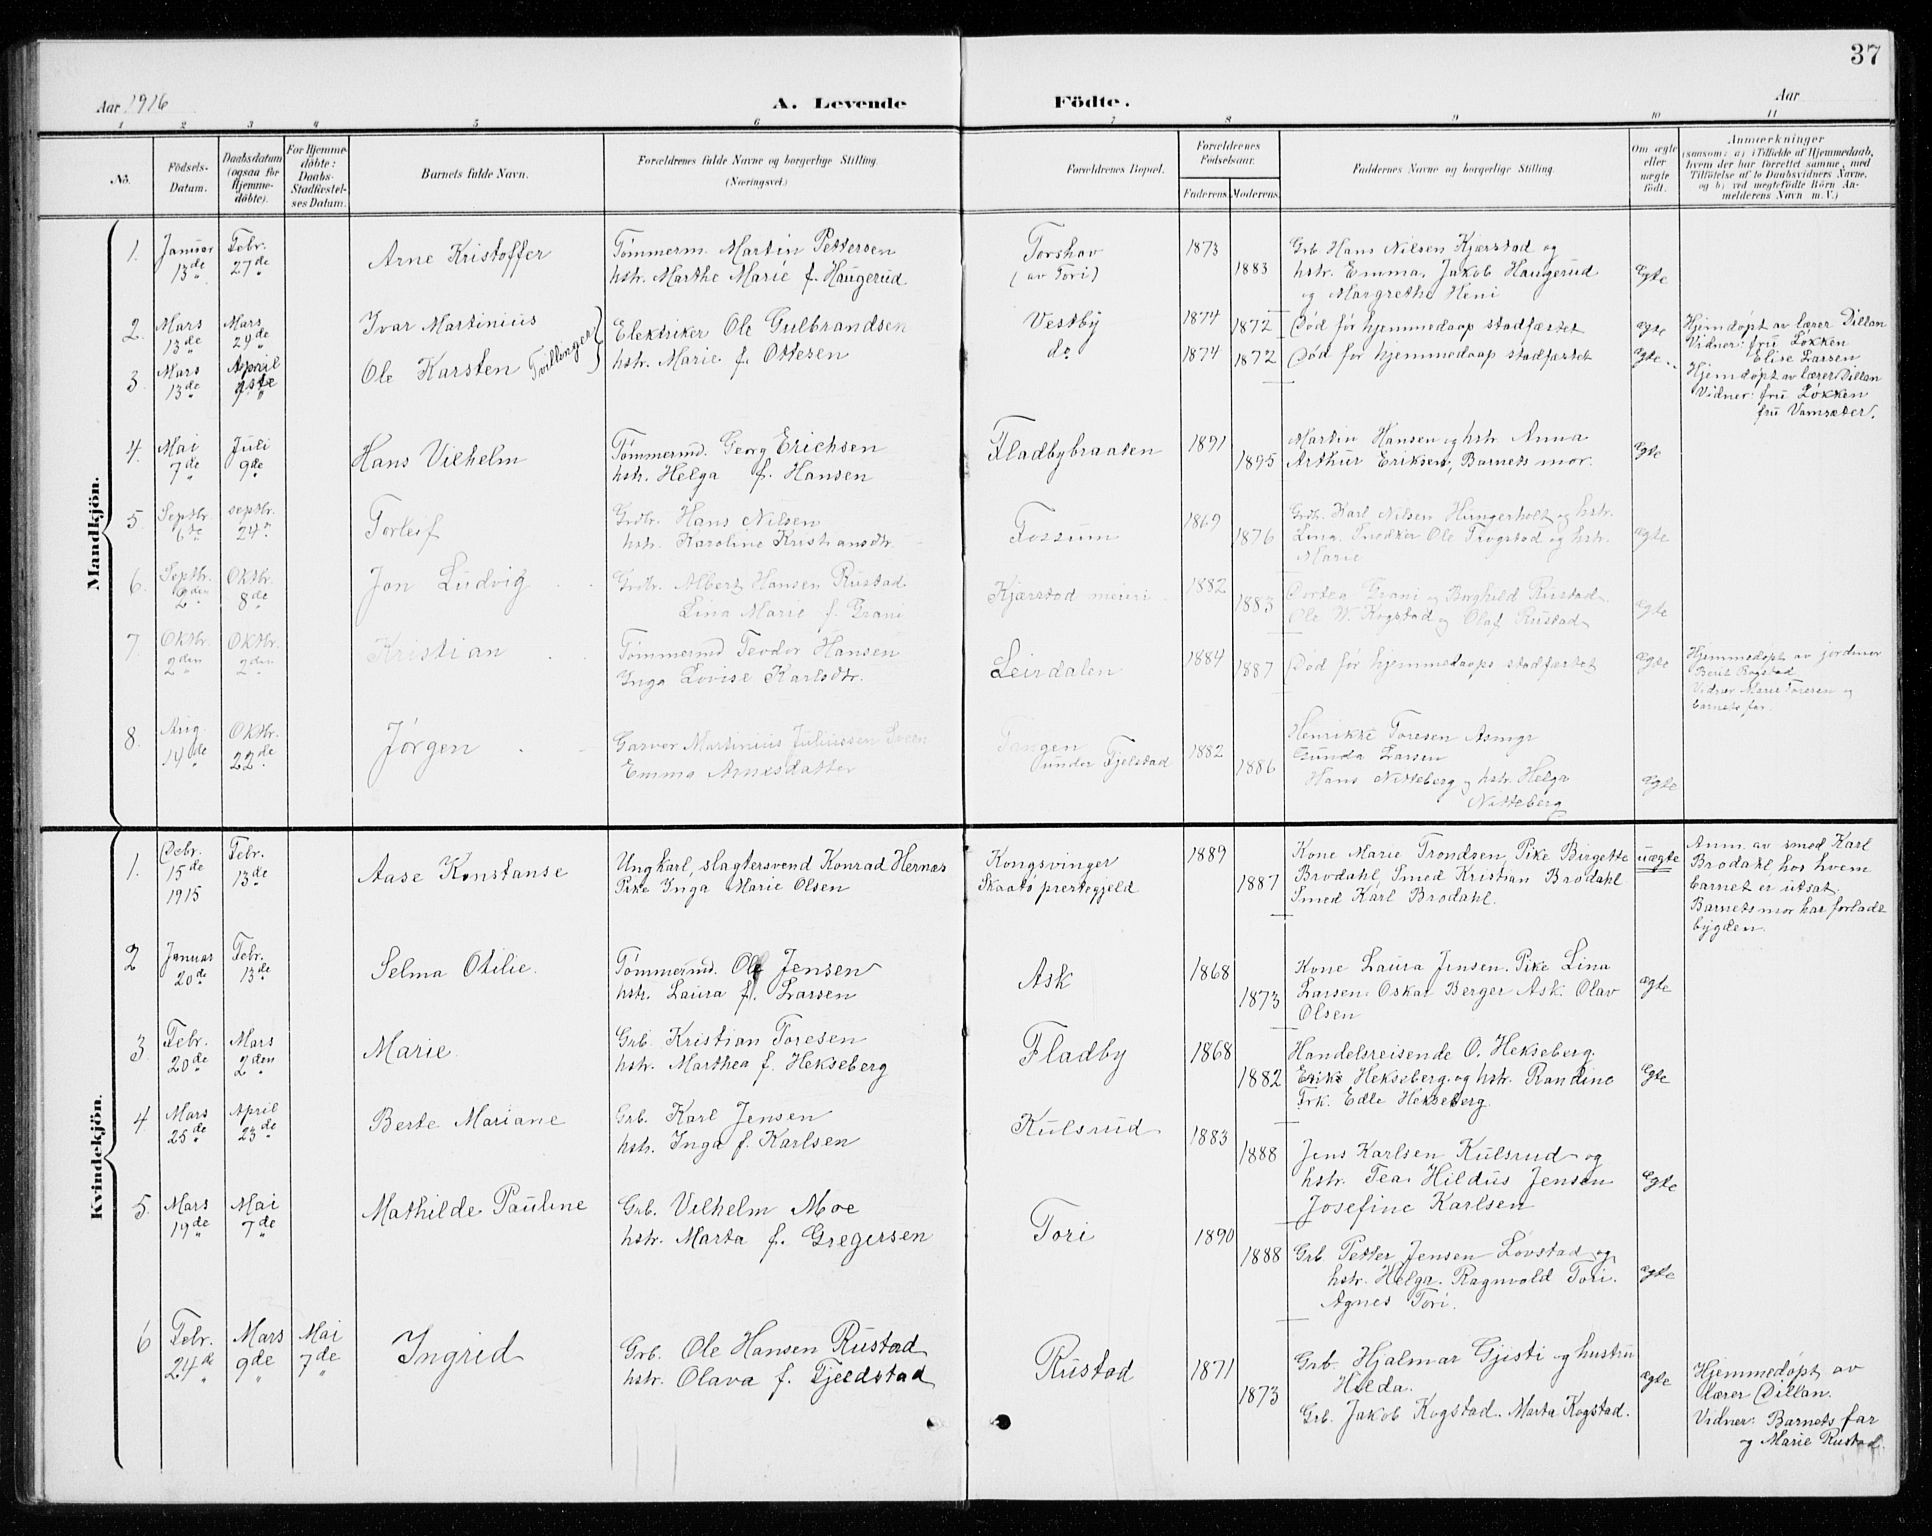 37
Aar 1916
A. Levende Födte.
Aar
1 2 3 4 5 6 7 8 9 10 11
No. Födsels-Datum. Daabsdatum (ogsaa for Hjemme-döbte). For Hjemme-döbte: Daabs-Stadfæstel-ses Datum. Barnets fulde Navn. Forældrenes fulde Navne og borgerlige Stilling. (Næringsvei.) Forældrenes Bopæl. Forældrenes Födselsaar. Faderens. Moderens. Faddernes Navne og borgerlige Stilling. Om ægte eller uægte födt. Anmærkninger (saasom: a) i Tilfælde af Hjemmedaab, hvem der har forrettet samme, med Tilföielse af to Daabsvidners Navne, og b) ved uegtefödte Börn An-melderens Navn m. V.)
Mandkjön.
1. Januar 13de Febr. 27de Arne Kristoffer Tømmerm. Martin Pettersen
hstr. Marthe Marie f. Haugerud
Torshov (av Tori) 1873 1883
Grb Hans Nilsen Kjærstad og
hstr. Emma. Jakob Haugerud
og Margrethe Heni
ægte
2. Mars 13de Mars 29de Ivar Martinius
3. Mars 13de April 1ste Ole Karsten
Tvillinger
Elektriker Ole Gulbrandsen
hstr. Marie f. Ottesen
Vestby 1874 1872 Død før hjemmedaap stadfæstet ægte
do 1874 1872 Død før hjemmedaap stadfæstet ægte
Hjemdøpt av lærer Dillan
Vidner: fru Løkken
Elise Larsen
Hjemdøpt av lærer Dillan
Vidner: fru Løkken
fru Vamsæter.
4. Mai 7de Juli 9de Hans Vilhelm Tømmermd. Georg Erichsen
hstr. Helga f. Hansen
Fladbybraaten 1891 1895
Martin Hansen og hstr. Anna
Arthur Eriksen, Barnets mor.
ægte
5. Septbr. 6te septbr. 24 Torleif Grdbr. Hans Nilsen
hstr. Karoline Kristiansdtr.
Fossum 1869 1876
Grdb. Karl Nilsen Hungerholt og hstr.
Lina. Snedker Ole Trogstad og hstr.
Marie
ægte
6. Septbr. Oktbr. 8de Jon Ludvig Grdbr. Albert Hansen Rustad
Lina Marie f. Grani
Kjærstad meieri 1882 1883
Dortea Grani og Borghild Rustad.
Ole W. Kogstad og Olaf Rustad
ægte
7. Oktbr. 2den Oktbr. 2den Kristian Tømmermd Teodor Hansen
Inga Lovise Karlsdtr.
Leirdalen 1884 1887 Død før hjemmedaaps stadfæstet ægte
Hjemmedøpt av jordmor
Berit Rogstad
Vidner Marie Toresen og
barnets far.
8. Aug. 14de Oktbr. 22de Jørgen Garver Martinius Juliussen Sveen
Emma Arnesdatter
Tangen
under Fjelstad 1882 1886
Henrikke Toresen Asmyr
Gunda Larsen
Hans Nitteberg og hstr. Helga
Nitteberg
ægte
Kvindekjön.
1. Debr. 15de 1915 Febr. 13de Aase Konstanse Ungkarl, slagtersvend Konrad Hernæs
Pike Inga Marie Olsen
Kongsvinger
Skaats prestegjeld 1889 1887
Kone Marie Trondsen, Pike Birgette
Brodahl, Smed Kristian Brodahl
Smed Karl Brodahl.
uægte
Anm. av smed Karl
Brodahl, hos hvem
barnet er utsat.
Barnets mor har forladt
bygden.
2 Januar 20de Febr. 13de Selma Otilie. Tømmermd. Ole Jensen
hstr. Laura f. Larsen
Ask 1868 1873
Kone Laura Jensen. Pike Lina
Larsen. Oskar Berger Ask. Olav
Olsen
ægte
3. Febr. 20de Mars 2den Marie. Grb. Kristian Toresen
hstr. Marthea f. Hekseberg
Fladby 1868 1882
Handelsreisende O. Hekseberg.
Erik Hekseberg. og hstr. Randine
Frk. Edle Hekseberg.
ægte
4 Mars 25de April 23de Berte Mariane Grb. Karl Jensen
hstr. Inga f. Karlsen
Kulsrud 1883 1888
Jens Karlsen Kulsrud og
hstr. Tea. Hildus Jensen
Josefine Karlsen
ægte
5. Mars 19de Mai 7de Mathilde Pauline Grb. Vilhelm Moe
hstr. Marta f. Gregersen
Tori 1890 1888
Grb. Petter Jensen Lovstad og
hstr. Helga. Ragnvald Tori.
Agnes Tori.
ægte
6 Febr. 24de Mars 9de Mai 7de Ingrid Grb. Ole Hansen Rustad
hstr. Olava f. Fjeldstad
Rustad 1871 1873
Grb. Hjalmar Gjisti og hustru
Hilda.
Grb. Jakob Kogstad. Marta Kogstad.
ægte
Hjemmedøpt av
lærer Dillan.
Vidner: Barnets far
og Marie Rustad.